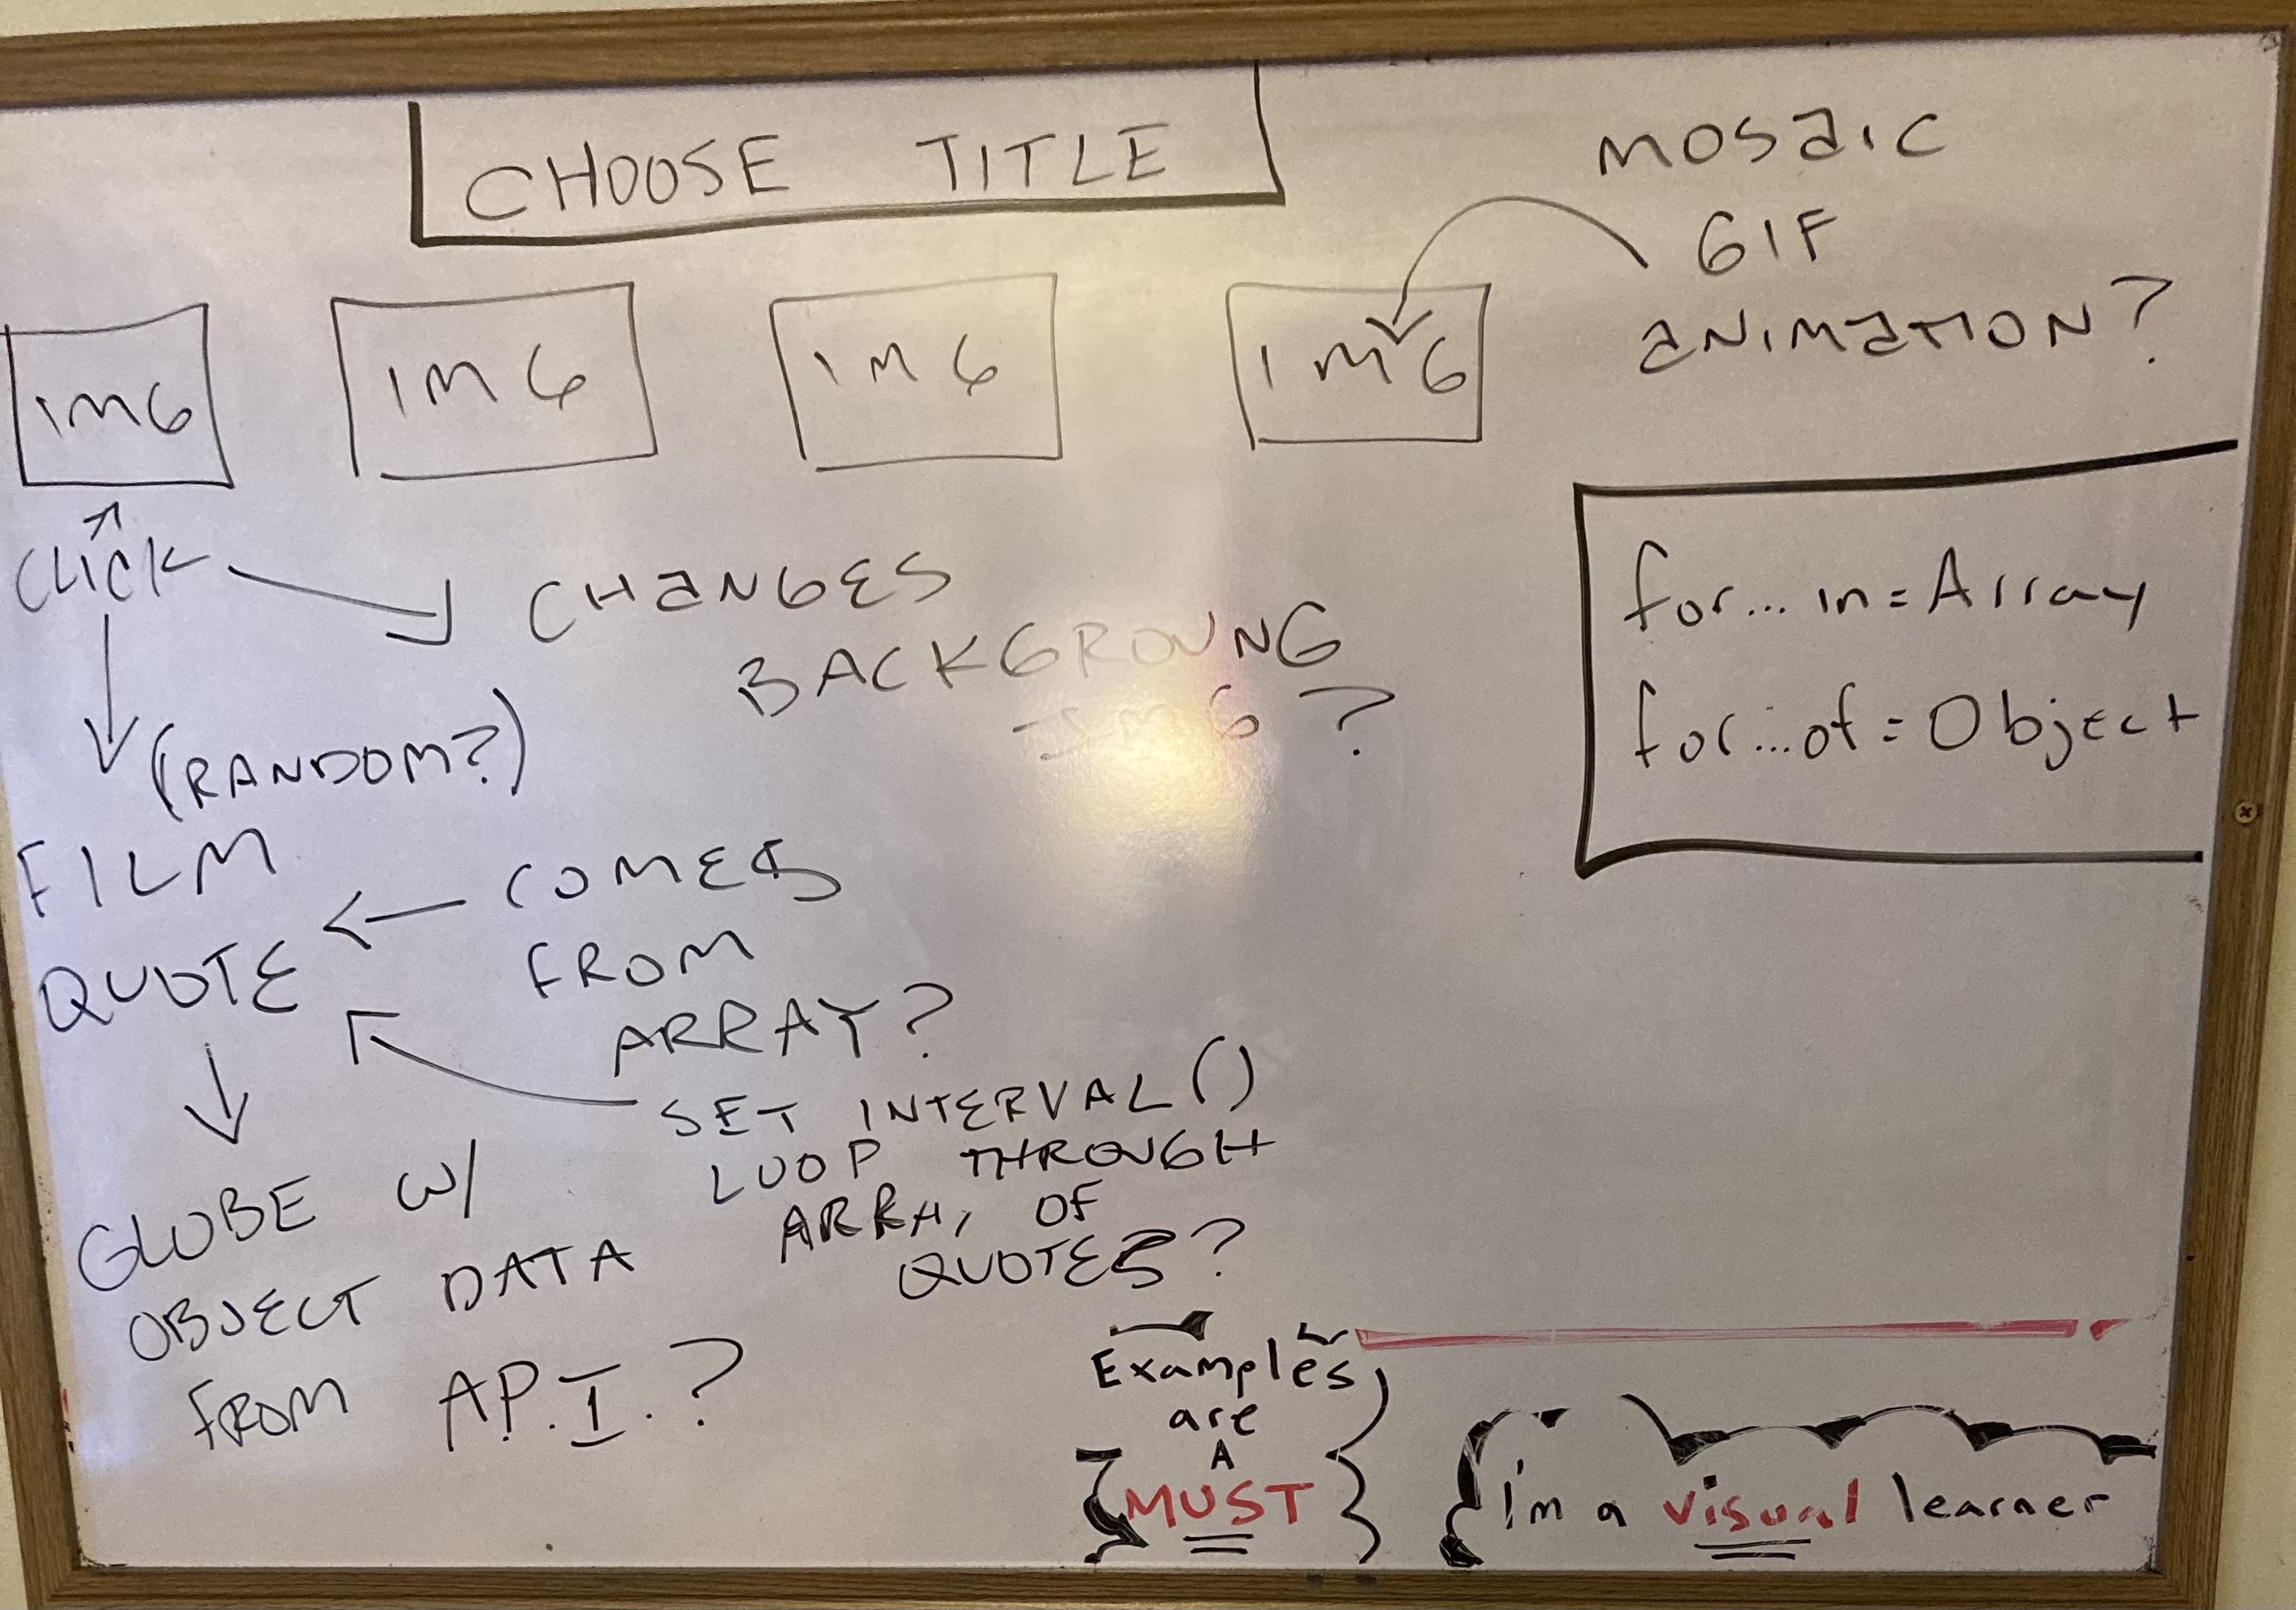 CHOOSE TITLE
MOSAIC
GIF
ANIMATION?
IMG
IMG
IMG
IMG
CLICK
CHANGES
BACKGROUNG
IMG?
(RANDOM?)
FILM
QUOTE
COMES
FROM
ARRAY?
SET INTERVAL()
LOOP THROUGH
ARRAY OF
QUOTES?
GLOBE W/
OBJECT DATA
FROM A.P.I.?
for... in = Array
for... of = Object
Examples
are
A
MUST
I'm a visual learner